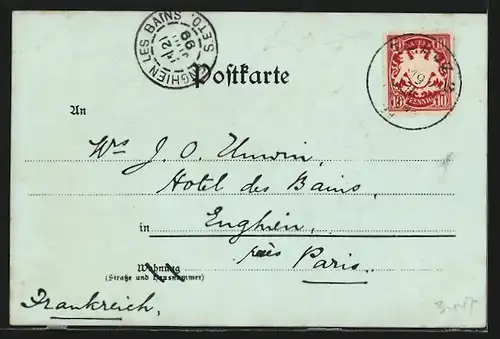 ENGHIEN LES BAINS S. ET O.
99
Postkarte
10 10
10 PFENNIG 10
An
Mrs J. O. Unwin,
Hotel des Bains,
in Enghien,
près Paris.
Wohnung
(Straße und Hausnummer)
Frankreich,